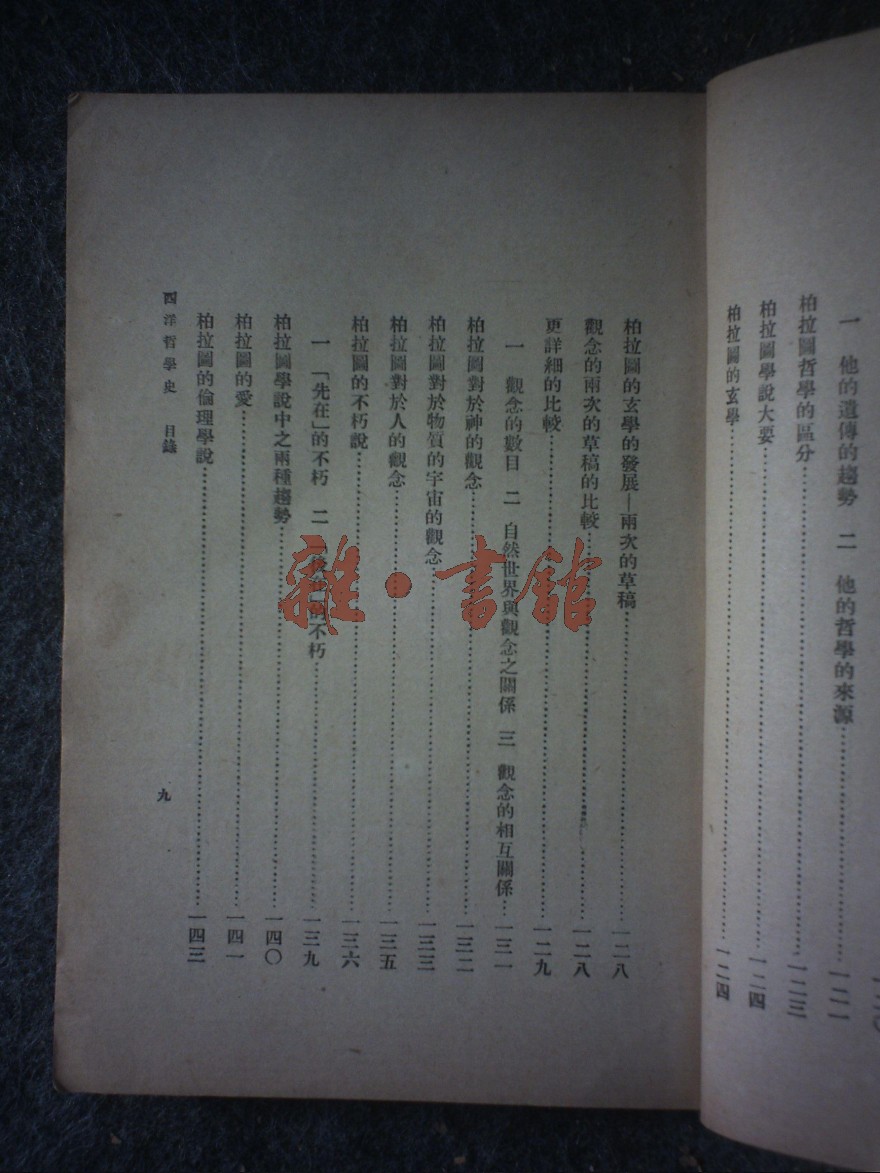 一 他的遺傳的趨勢 二 他的哲學的來源……一二一
柏拉圖哲學的區分……一二三
柏拉圖學說大要……一二四
柏拉圖的玄學……一二四
柏拉圖的玄學的發展—兩次的草稿……一二八
觀念的兩次的草稿的比較……一二八
更詳細的比較……一二九
一 觀念的數目 二 自然世界與觀念之關係 三 觀念的相互關係……一三一
柏拉圖對於神的觀念……一三二
柏拉圖對於物質的宇宙的觀念……一三三
柏拉圖對於人的觀念……一三五
柏拉圖的不朽說……一三六
一 「先在」的不朽 二 的不朽……一三九
柏拉圖學說中之兩種趨勢……一四〇
柏拉圖的愛……一四一
柏拉圖的倫理學說……一四三
西洋哲學史 目錄
九
雜·書館